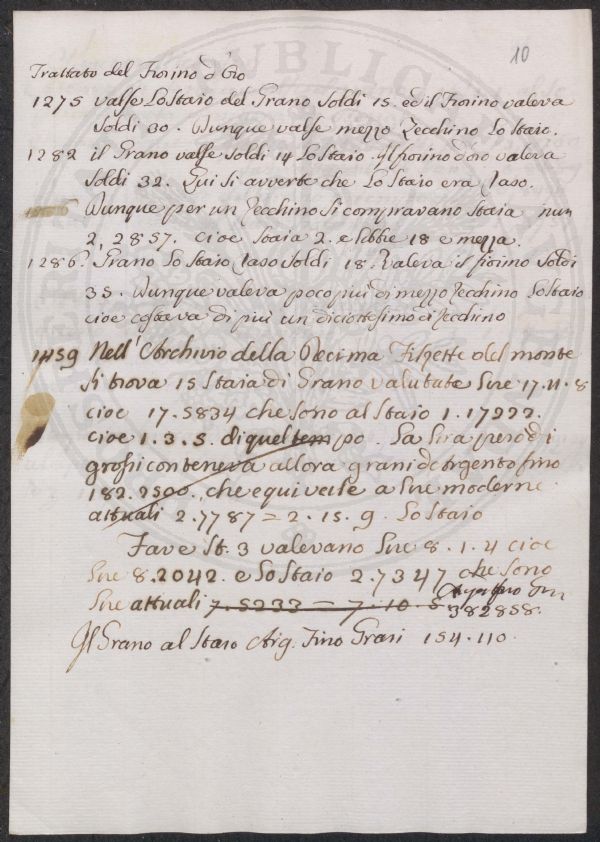 10
Trattato del Fiorino d'Oro
1275 valse Lo Staio del Grano Soldi 15. ed il Fiorino valeva
Soldi 30. Dunque valse mezzo Zecchino Lo Staio.
1282 il Grano valse Soldi 14 Lo Staio. Il fiorino d'oro valeva
Soldi 32. Qui si avverte che Lo Staio era Raso.
Dunque per un Zecchino si compravano Staia num
2,2857. cioe Staia 2. e libbre 18 e mezza.
1286. Grano Lo Staio Raso Soldi 18. Valeva il fiorino Soldi
35. Dunque valeva poco più di mezzo Zecchino Lo Staio
cioe costava di più un diciottesimo di Zecchino
1459 Nell'Archivio della Decima Filzette del monte
si trova 15 Staia di Grano valutate Lire 17.11.8
cioe 17.5834 che sono al Staio 1.17222.
cioe 1.3.5. di quel tempo. La Lira pero di
grossi conteneva allora grani d'Argento fino
182.2500. che equivale a Lire moderne
attuali 2.7787 = 2.15.9. Lo Staio
Fave St. 3 valevano Lire 8.1.4 cioe
Lire 8.2042. e Lo Staio 2.7347 che sono
Lire attuali 7.5233 = 7.10.5
382858.
Il Grano al Staio Arg. Fino Grani 154.110.
PUBLICA